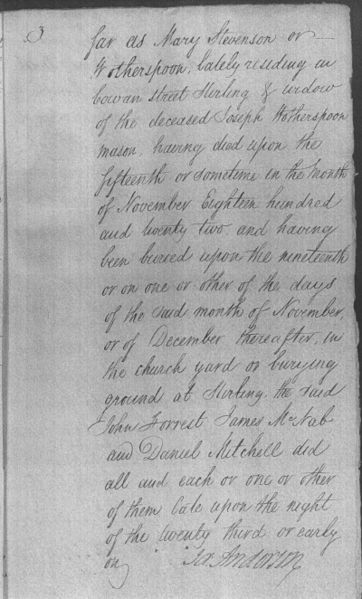 3
far as Mary Stevenson or
Wotherspoon, lately residing in
Cowan street Stirling & widow
of the deceased Joseph Wotherspoon
mason, having died upon the
fifteenth or sometime in the month
of November Eighteen hundred
and twenty two and having
been buried upon the nineteenth
or on one or other of the days
of the said month of November,
or of December thereafter, in
the church yard or burying
ground at Stirling, the said
John Forrest James McNab
and Daniel Mitchell did
all and each or one or other
of them late upon the night
of the twenty third or early
on
Ja. Anderson